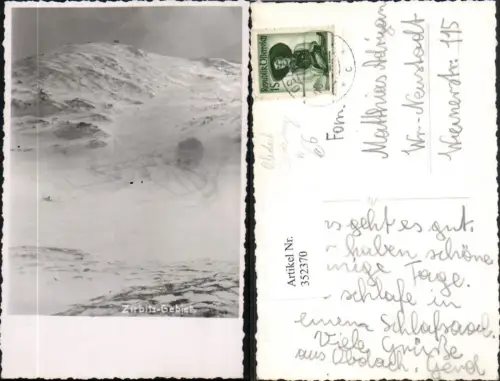 Zirbitz-Gebiet.
Republik Österreich
1S
Fam.
Matthias
Wr.-Neustadt
Wienerstr. 115
Artikel Nr.
352370
s geht es gut.
haben schöne
nige Tage.
schlafe in
einem Schlafsack.
Viele Grüße
aus Obdach. Gerd